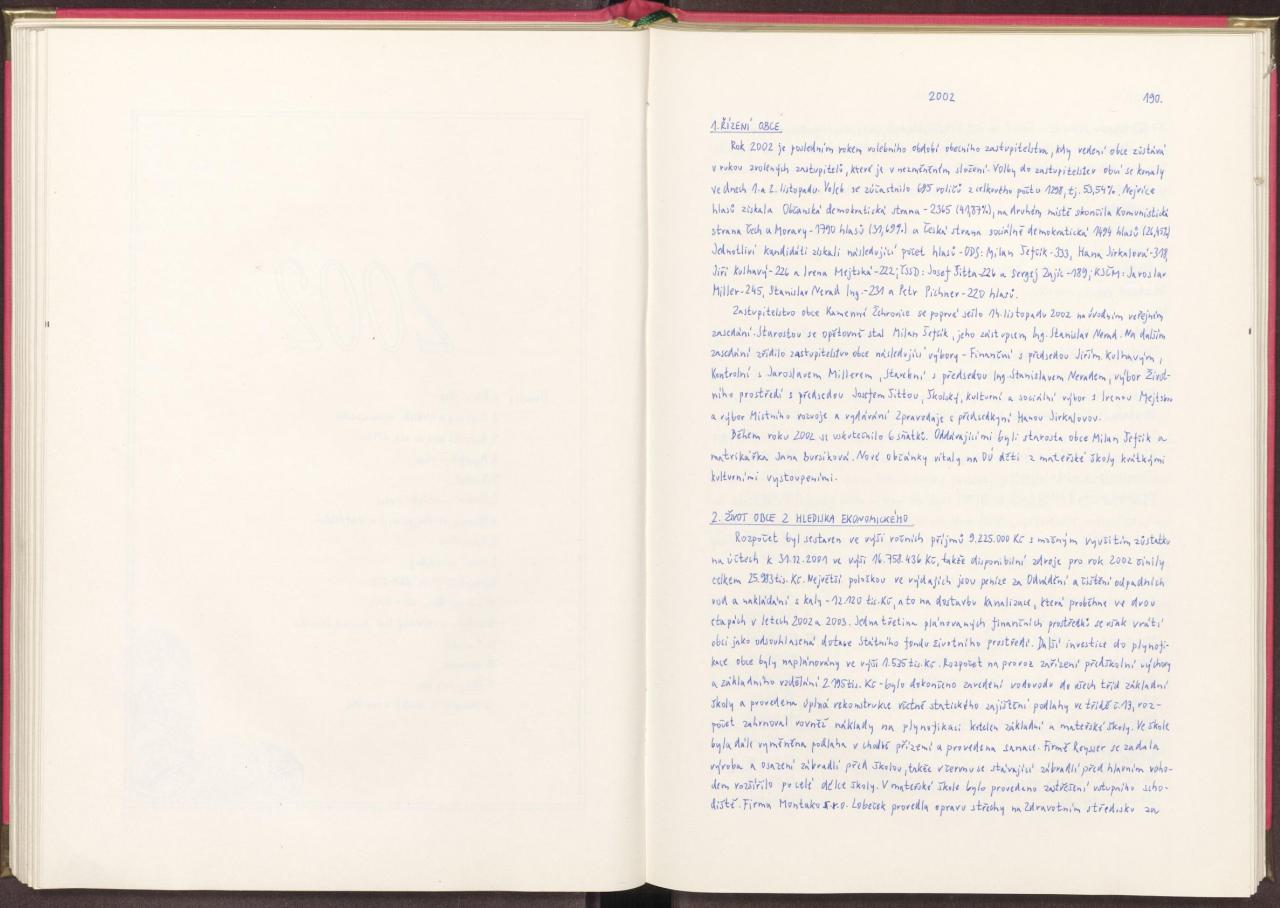 2002 190.
1. ŘÍZENÍ OBCE
Rok 2002 je posledním rokem volebního období obecního zastupitelstva, kdy vedení obce zůstává
v rukou zvolených zastupitelů, které je v nezměněném složení. Volby do zastupitelstev obcí se konaly
ve dnech 1. a 2. listopadu. Voleb se zúčastnilo 695 voličů z celkového počtu 1298, tj. 53,54%. Nejvíce
hlasů získala Občanská demokratická strana - 2365 (41,87%), na druhém místě skončila Komunistická
strana Čech a Moravy - 1790 hlasů (31,69%) a Česká strana sociálně demokratická 1494 hlasů (26,45%)
Jednotliví kandidáti získali následující počet hlasů - ODS: Milan Šefčík - 333, Hana Jirkalová - 318,
Jiří Kulhavý - 226 a Irena Mejtská - 222; ČSSD: Josef Šitta - 226 a Sergej Zajíc - 189; KSČM: Jaroslav
Miller - 245, Stanislav Nerad Ing. - 231 a Petr Pichner - 220 hlasů.
Zastupitelstvo obce Kamenné Žehrovice se poprvé sešlo 14. listopadu 2002 na úvodním veřejném
zasedání. Starostou se opětovně stal Milan Šefčík, jeho zástupcem Ing. Stanislav Nerad. Na dalším
zasedání zřídilo zastupitelstvo obce následující výbory - Finanční s předsedou Jiřím Kulhavým,
Kontrolní s Jaroslavem Millerem, Stavební s předsedou Ing. Stanislavem Neradem, výbor Život-
ního prostředí s předsedou Josefem Šittou, Školský, kulturní a sociální výbor s Irenou Mejtskou
a výbor Místního rozvoje a vydávání Zpravodaje s předsedkyní Hanou Jirkalovou.
Během roku 2002 se uskutečnilo 6 sňatků. Oddávajícími byli starosta obce Milan Šefčík a
matrikářka Jana Bursíková. Nové občánky vítaly na OÚ děti z mateřské školy krátkými
kulturními vystoupeními.
2. ŽIVOT OBCE Z HLEDISKA EKONOMICKÉHO
Rozpočet byl sestaven ve výši ročních příjmů 9.225.000 Kč s možným využitím zůstatku
na účtech k 31.12.2001 ve výši 16.758.436 Kč, takže disponibilní zdroje pro rok 2002 činily
celkem 25.983 tis. Kč. Největší položkou ve výdajích jsou peníze za Odvádění a čištění odpadních
vod a nakládání s kaly - 12.120 tis. Kč, a to na dostavbu kanalizace, která proběhne ve dvou
etapách v letech 2002 a 2003. Jedna třetina plánovaných finančních prostředků se však vrátí
obci jako odsouhlasená dotace Státního fondu životního prostředí. Další investice do plynofi-
kace obce byly naplánovány ve výši 1.535 tis. Kč. Rozpočet na provoz zařízení předškolní výchovy
a základního vzdělání 2.195 tis. Kč - bylo dokončeno zavedení vodovodu do všech tříd základní
školy a provedena úplná rekonstrukce včetně statického zajištění podlahy ve třídě č. 13, roz-
počet zahrnoval rovněž náklady na plynofikaci kotelen základní a mateřské školy. Ve škole
byla dále vyměněna podlaha v chodbě přízemí a provedena sanace. Firmě Reysser se zadala
výroba a osazení zábradlí před školou, takže v červnu se stávající zábradlí před hlavním vcho-
dem rozšířilo po celé délce školy. V mateřské škole bylo provedeno zastřešení vstupního scho-
diště. Firma Montako s.r.o. Lobeček provedla opravu střechy na Zdravotním středisku za